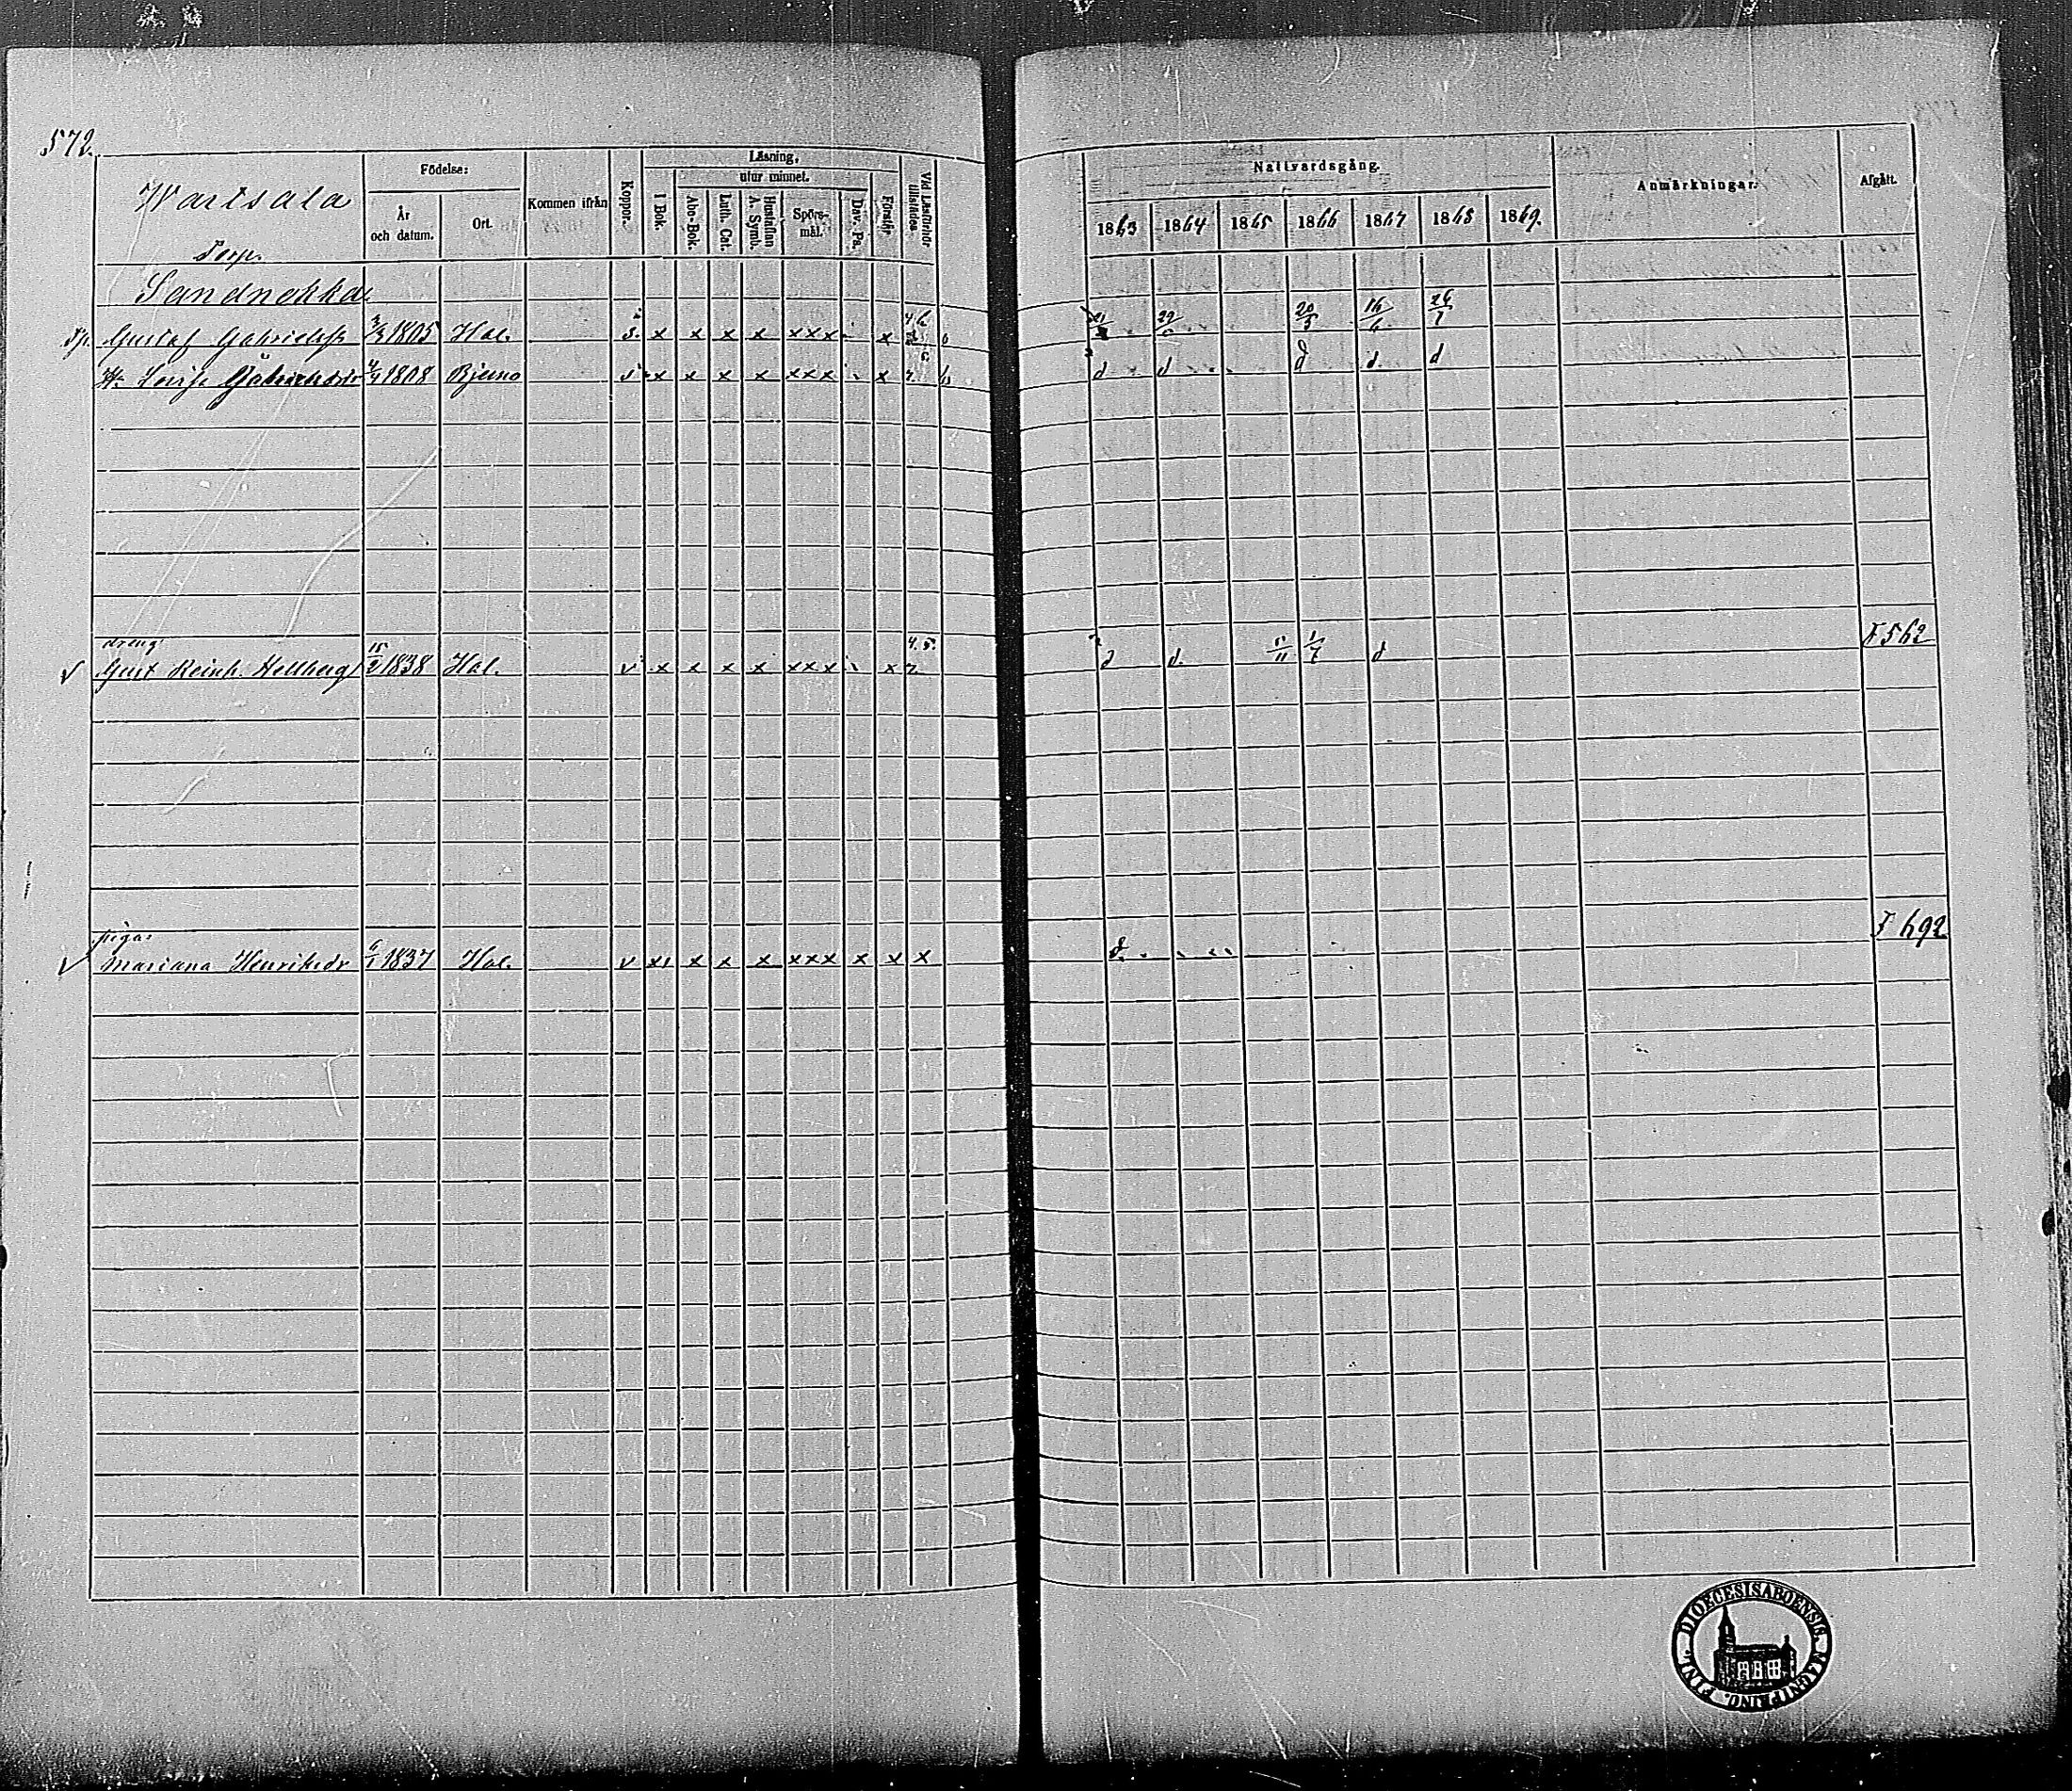 572.
Wartsala
Torp.
Födelse:
År och datum.
Ort.
Kommen ifrån
Koppor.
Läsning,
utur minnet.
I Bok.
Abc-Bok.
Luth. Cat.
Hustaflan A. Symb.
Spörs-mål.
Dav. Ps.
Förstår
Vid Läsförhör tillstädes.
Nattvardsgång.
1863 1864 1865 1866 1867 1868 1869.
Anmärkningar.
Afgått.
Sandnokka
Gustaf Gabrielss 1805 Hal. x x x x xxx x 20/5 16/6
H. Lovisa Gabrielsdr 1808 Bjerno v x x x x xxx x d d d d d
dreng
v Gust Reinh. Hellberg 15/2 1838 Hal. v x x x x xxx x d d. 5/11 1/7 d F 562
piga:
v Mariana Henriksdr 6/1 1837 Hal. v x x x x xxx x x x d. F 692
DIOECESIS ABOENSIS. MAGNI PRINC. FINL.